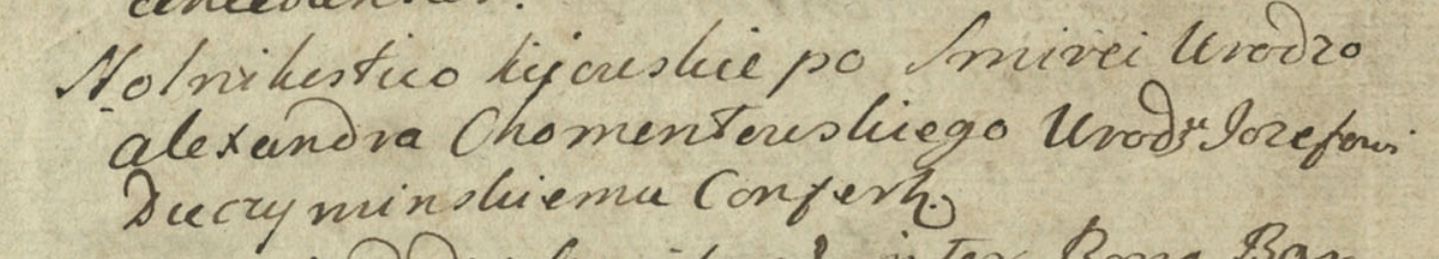 Stolnikostwo kijowskie po Smirci Urodzo
alexandra Chomentowskiego Urodz<sup>u</sup> Jozefowi
Duczyminskiemu Confert.
inter